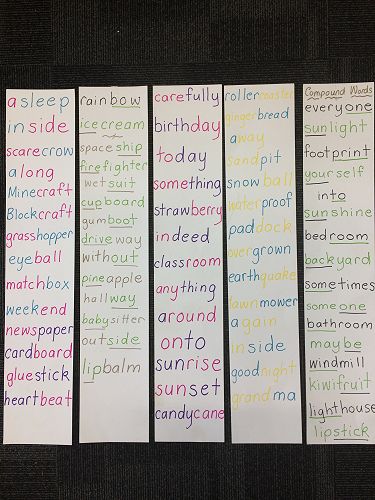 asleep
inside
scarecrow
along
Minecraft
Blockcraft
grasshopper
eyeball
matchbox
weekend
newspaper
cardboard
gluestick
heartbeat
rainbow
icecream
spaceship
firefighter
wetsuit
cupboard
gumboot
driveway
without
pineapple
hallway
babysitter
outside
lipbalm
carefully
birthday
today
something
strawberry
indeed
classroom
anything
around
onto
sunrise
sunset
candycane
rollercoaster
gingerbread
away
sandpit
snowball
waterproof
paddock
overgrown
earthquake
lawnmower
again
inside
goodnight
grandma
Compound Words
everyone
sunlight
footprint
yourself
into
sunshine
bedroom
backyard
sometimes
someone
bathroom
maybe
windmill
kiwifruit
lighthouse
lipstick